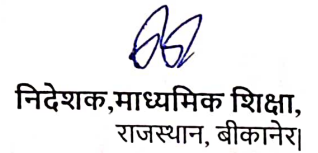 निदेशक,माध्यमिक शिक्षा,
राजस्थान, बीकानेर|